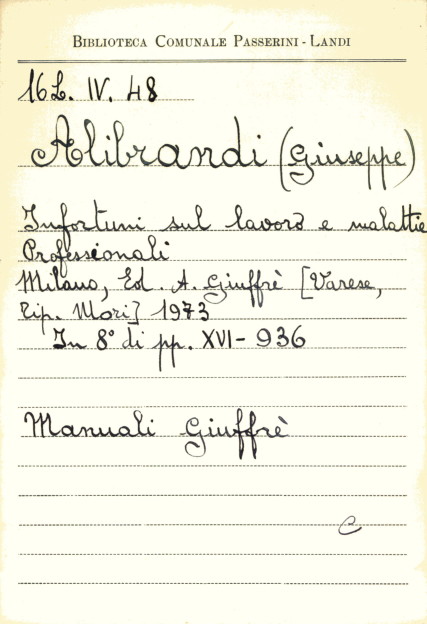 BIBLIOTECA COMUNALE PASSERINI - LANDI
16L. IV. 48
Alibrandi (Giuseppe)
Infortuni sul lavoro e malattie
Professionali
Milano, Ed. A. Giuffrè [Varese,
Tip. Mori] 1973
In 8° di pp. XVI - 936
Manuali Giuffrè
C